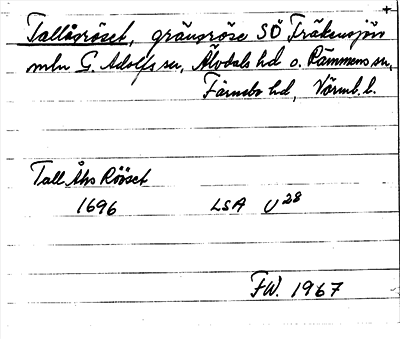 +
Tallåsröset, gränsröse SÖ Fräkensjön
mln G. Adolfs sn, Älvdals hd o. Rämmens sn,
Färnebo hd, Värml. l.
Tall Åhs Rööset
1696 LSA U 28
FW. 1967